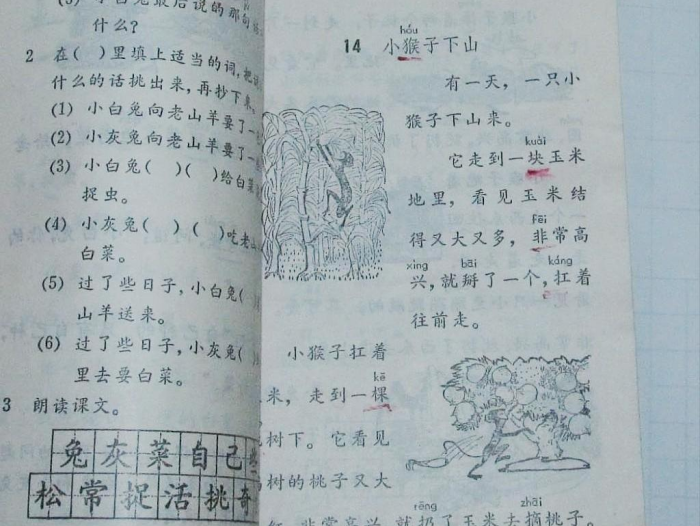 (3) 小白兔最后说的那句
什么?
2 在( )里填上适当的词,把
什么的话挑出来,再抄下来。
(1) 小白兔向老山羊要了一
(2) 小灰兔向老山羊要了一
(3) 小白兔( )( )给白菜
捉虫。
(4) 小灰兔( )( )吃老山
白菜。
(5) 过了些日子,小白兔(
山羊送来。
(6) 过了些日子,小灰兔(
里去要白菜。
3 朗读课文。
兔灰菜自己
松常捉活挑奇
hóu
14 小猴子下山
有一天,一只小
猴子下山来。
kuài
它走到一块玉米
地里,看见玉米结
fēi
得又大又多,非常高
xìng bāi káng
兴,就掰了一个,扛着
往前走。
小猴子扛着
kē
米,走到一棵
树下。它看见
树的桃子又大
rēng zhāi
红,非常高兴,就扔了玉米去摘桃子。